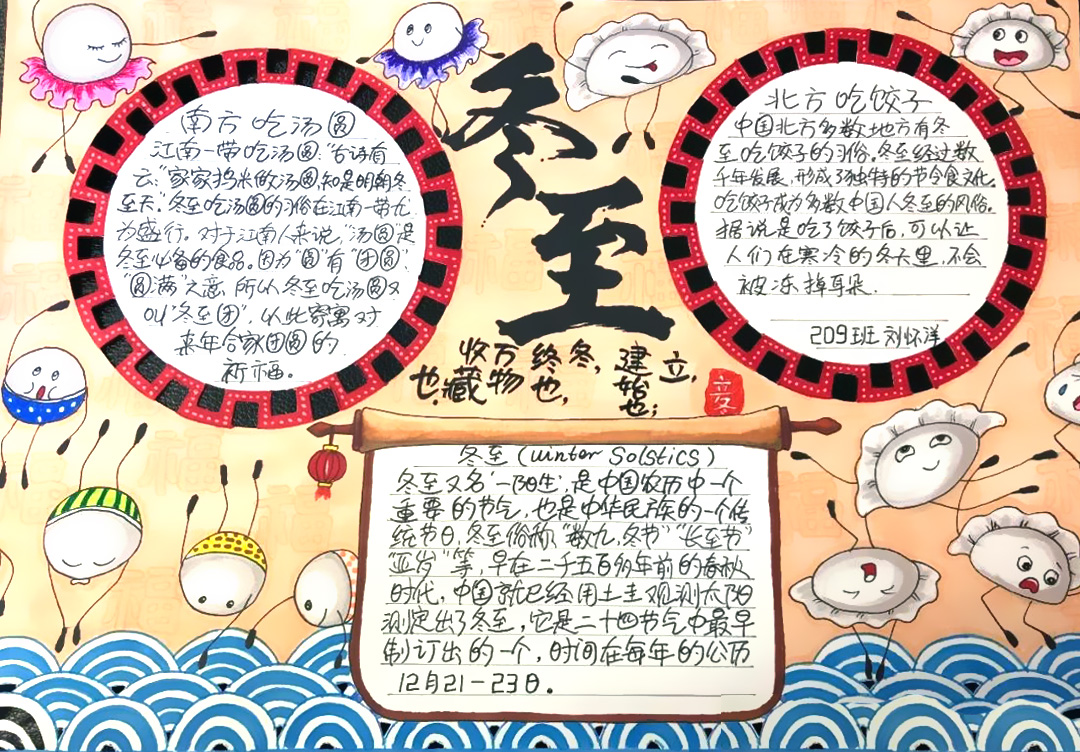 冬
至
南方吃汤圆
江南一带吃汤圆:"古诗有
云:"家家捣米做汤圆,知是明朝冬
至天."冬至吃汤圆的习俗在江南一带尤
为盛行.对于江南人来说,"汤圆"是
冬至必备的食品。因为"圆"有"团圆"
圆满"之意.所以冬至吃汤圆又
叫"冬至团",以此寄寓对
来年合家团圆的
祈福。
北方吃饺子
中国北方多数地方有冬
至吃饺子的习俗.冬至经过数
千年发展,形成了独特的节令食文化.
吃饺子成为多数中国人冬至的风俗.
据说是吃了饺子后,可以让
人们在寒冷的冬天里,不会
被冻掉耳朵.
209班 刘怀洋
立,
建始也;
冬,
终也,
万物
收藏也.
冬至(winter Solstics)
冬至又名"一阳生",是中国农历中一个
重要的节气,也是中华民族的一个传
统节日.冬至俗称"数九,冬节""长至节"
"亚岁"等,早在二千五百多年前的春秋
时代,中国就已经用土圭观测太阳
测定出了冬至,它是二十四节气中最早
制订出的一个,时间在每年的公历
12月21-23日。